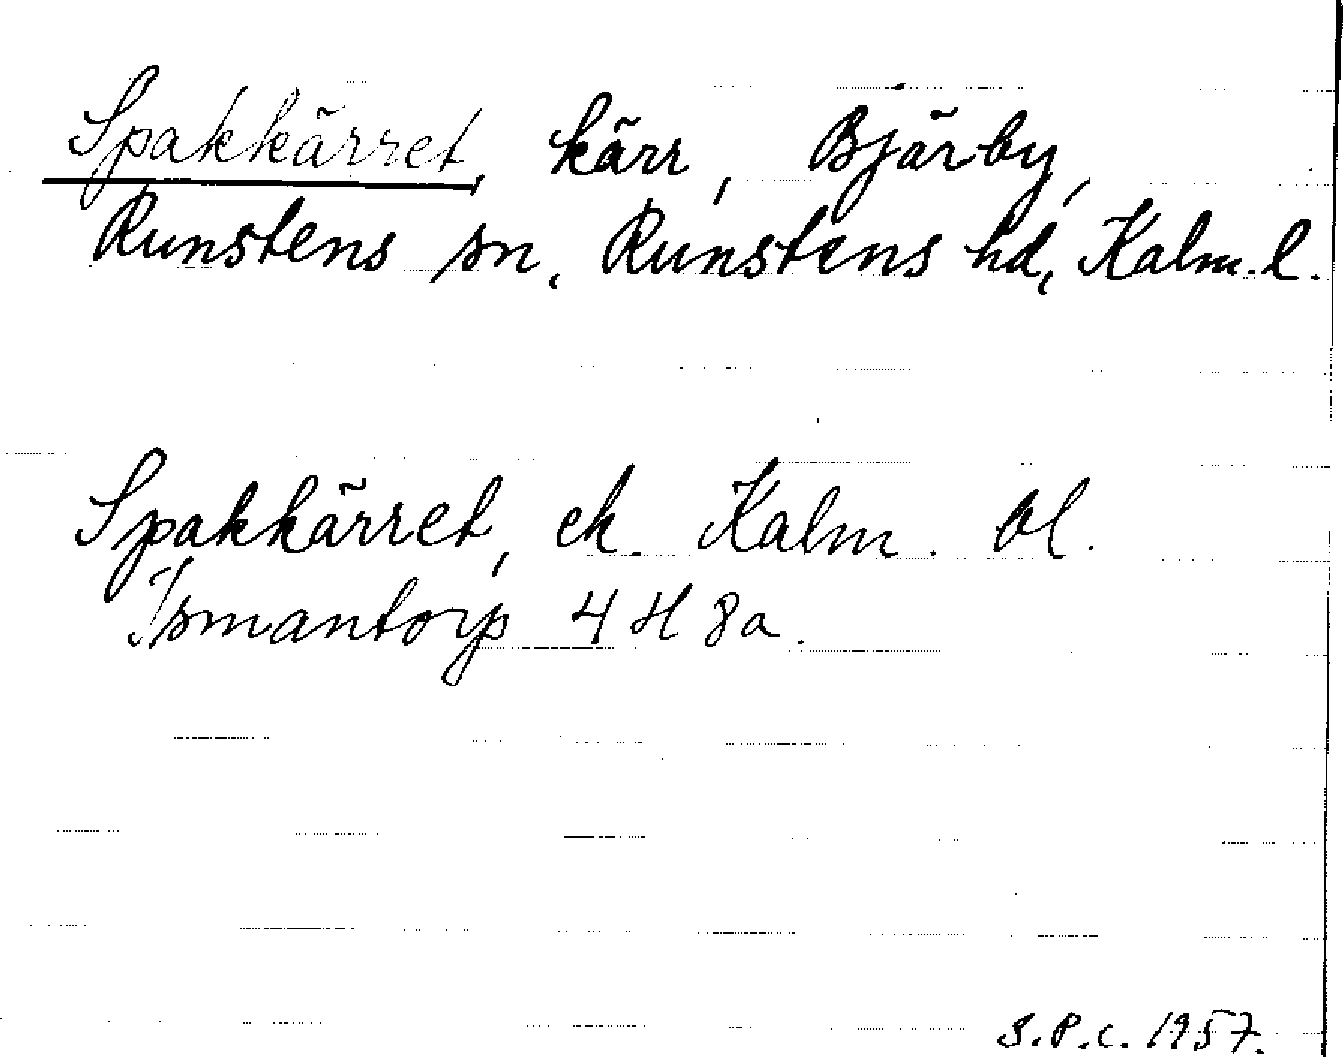 Spakkärret, kärr, Bjärby,
Runstens sn, Runstens hd, Kalm. l.
Spakkärret, ek. Kalm. bl.
Ismantorp 4 H 8a.
S.P.C. 1957.